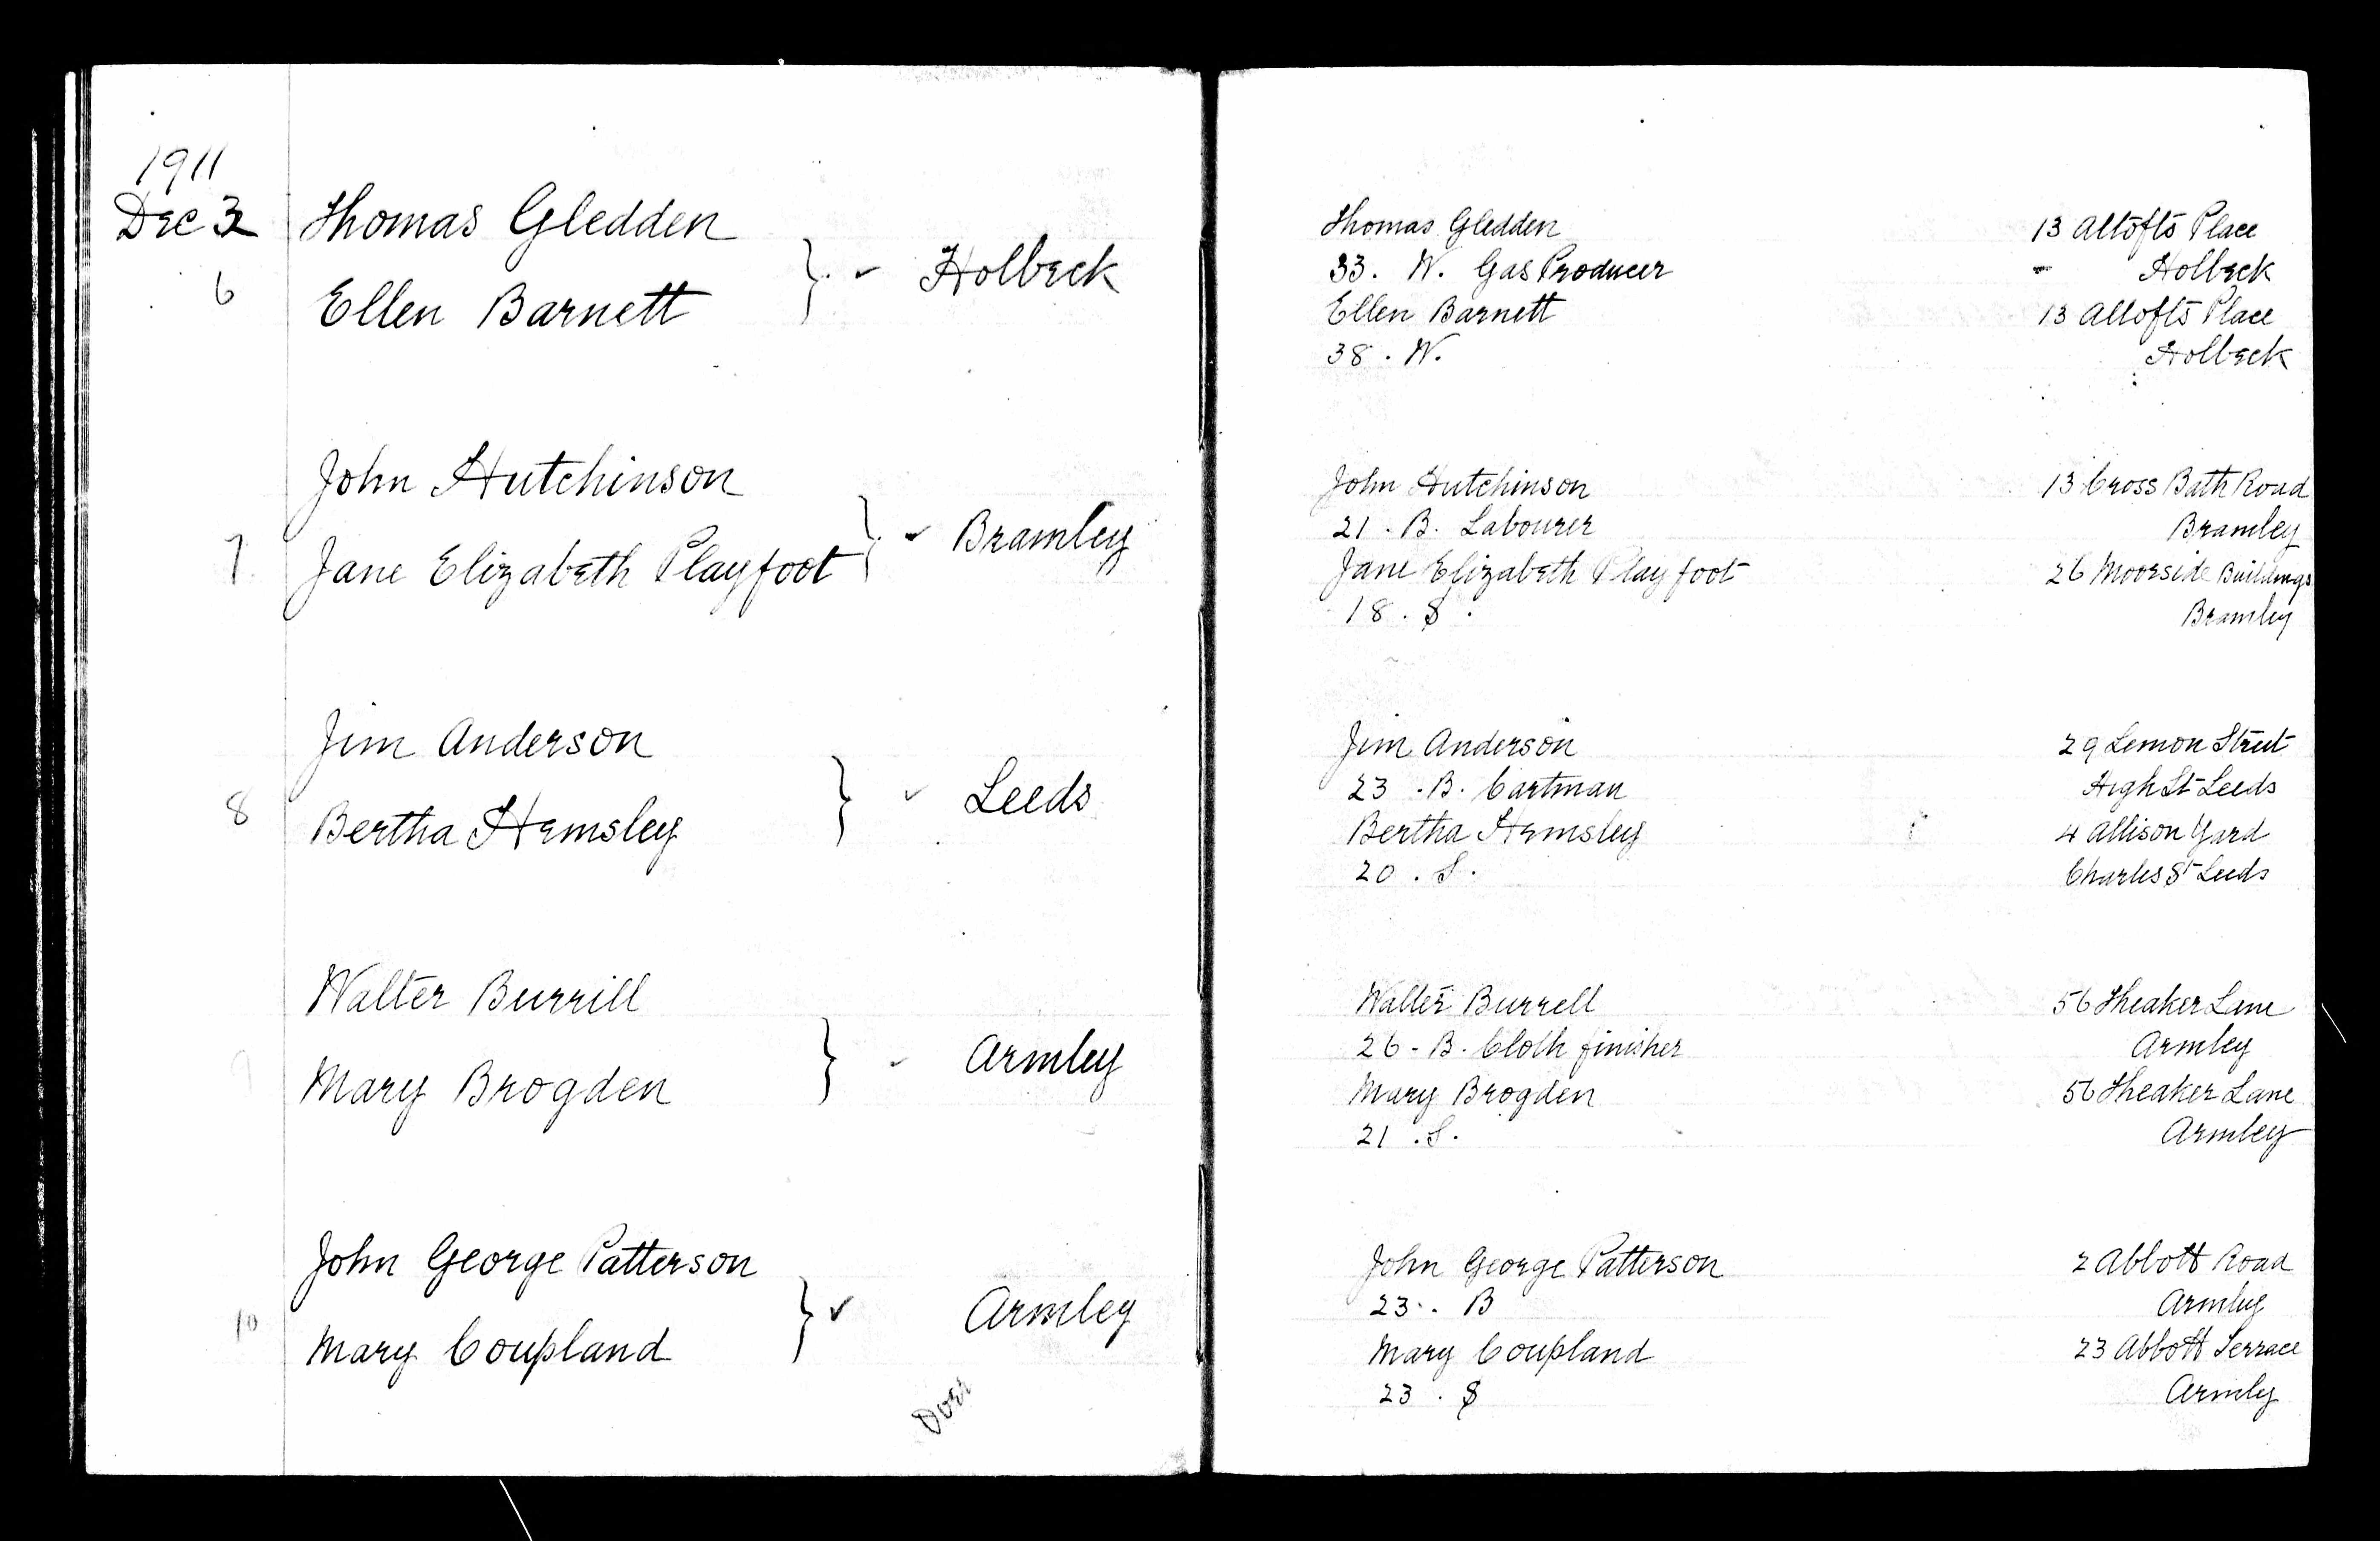 1911
Dec 3
Thomas Gledden
6
Ellen Barnett
} ✓ Holbeck
John Hutchinson
7
Jane Elizabeth Playfoot
} ✓ Bramley
Jim Anderson
8
Bertha Hemsley
} ✓ Leeds
Walter Burrill
9
Mary Brogden
} ✓ Armley
John George Patterson
10
Mary Coupland
} ✓ Armley
Thomas Gledden 13 Altofts Place
33. W. Gas Producer Holbeck
Ellen Barnett 13 Altofts Place
38. W. Holbeck
John Hutchinson 13 Cross Bath Road
21. B. Labourer Bramley
Jane Elizabeth Playfoot 26 Moorside Buildings
18. S. Bramley
Jim Anderson 29 Lemon Street
23. B. Cartman High St Leeds
Bertha Hemsley 4 Allison Yard
20. S. Charles St Leeds
Walter Burrell 56 Theaker Lane
26 - B. Cloth finisher Armley
Mary Brogden 56 Theaker Lane
21. S. Armley
John George Patterson 2 Abbott Road
23. B Armley
Mary Coupland 23 Abbott Terrace
23. S Armley